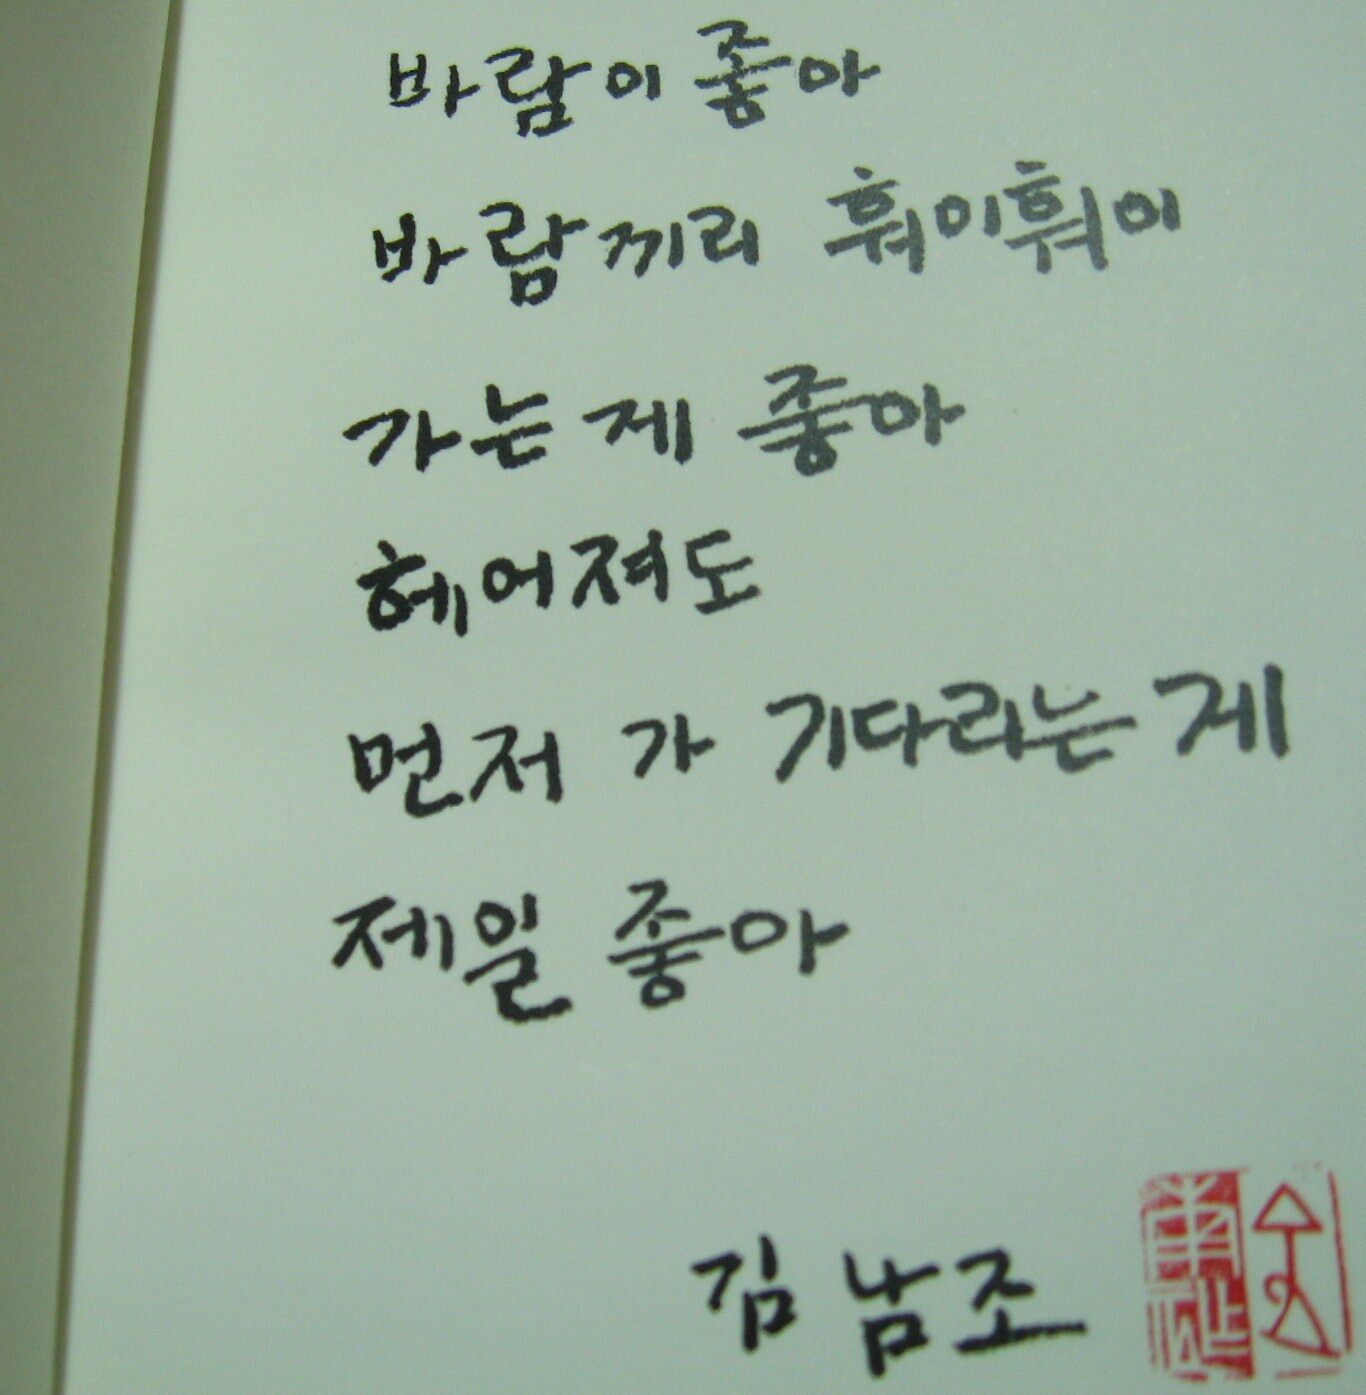 바람이 좋아
바람끼리 훠이훠이
가는 게 좋아
헤어져도
먼저 가 기다리는 게
제일 좋아
김남조